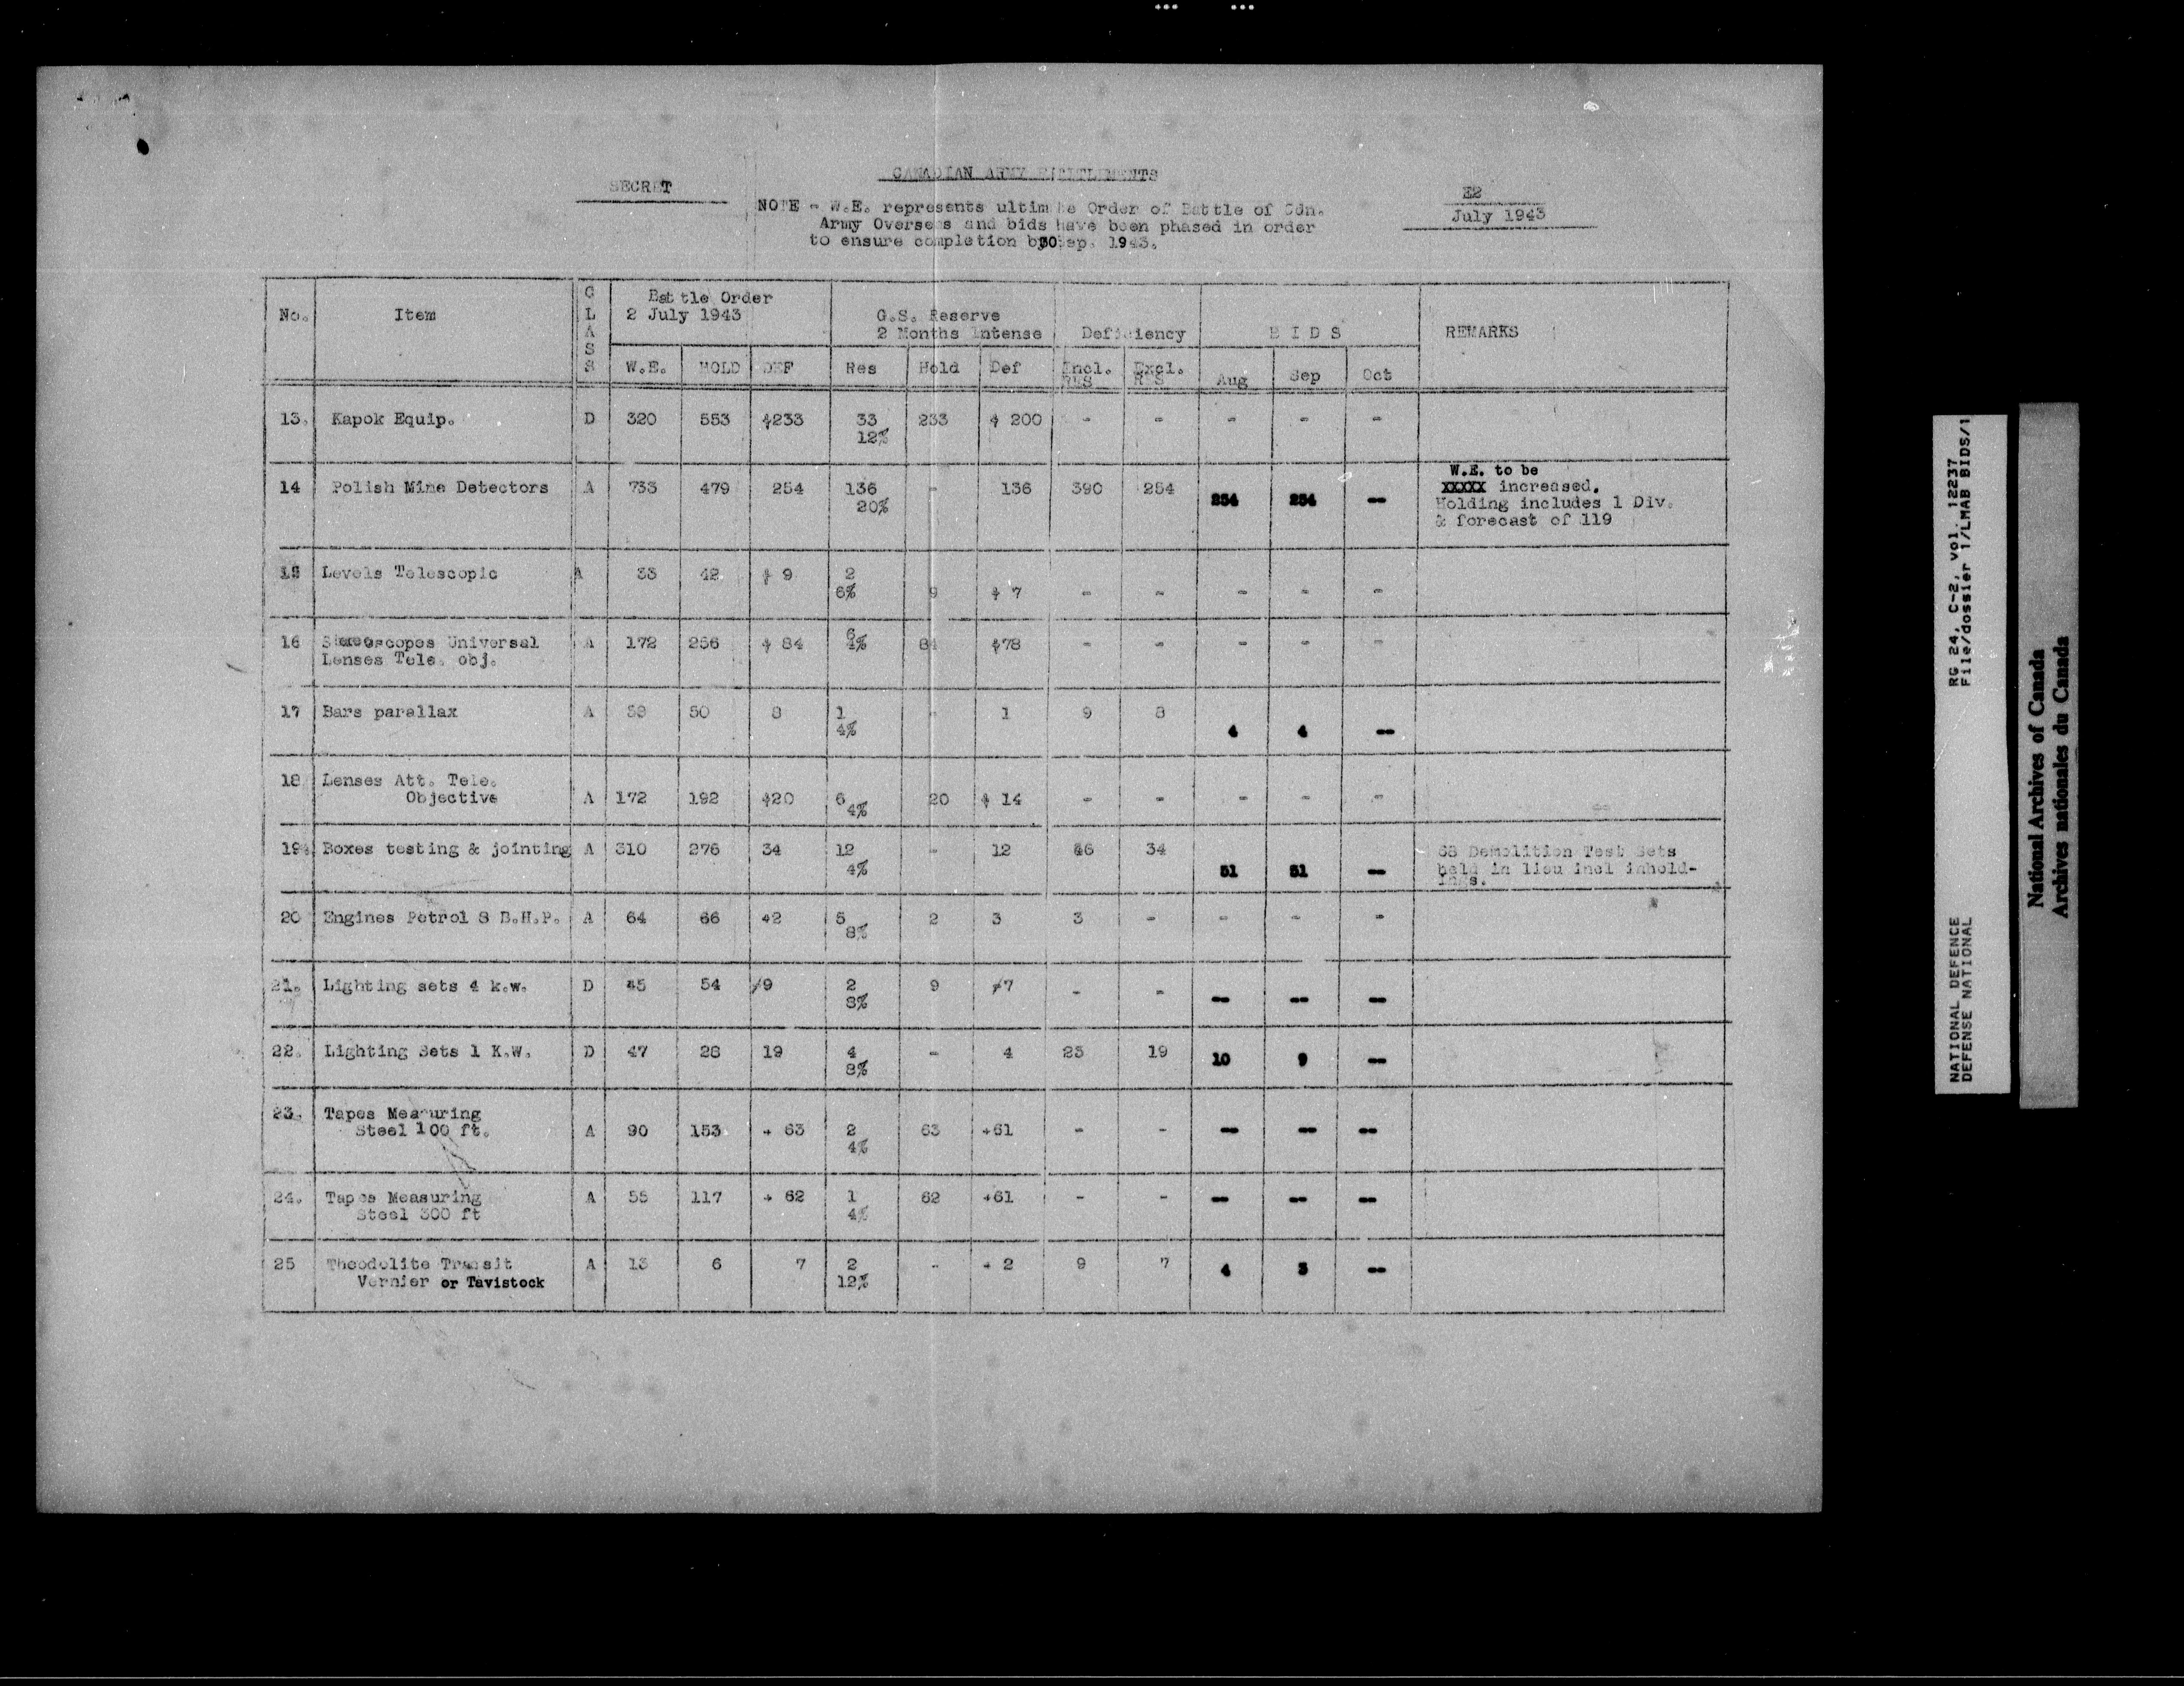 SECRET
CANADIAN ARMY ENTITLEMENTS
E2
July 1943
NOTE - W.E. represents ultimate Order of Battle of Cdn.
Army Overseas and bids have been phased in order
to ensure completion by 30 Sep. 1943.
No. Item CLASS Battle Order 2 July 1943 G.S. Reserve 2 Months Intense Deficiency BIDS REMARKS
W.E. HOLD DEF Res Hold Def Incl. RES Excl. RES Aug Sep Oct
13. Kapok Equip. D 320 553 +233 33 233 + 200 - - - - -
12%
14 Polish Mine Detectors A 733 479 254 136 - 136 390 254 254 254 -- W.E. to be
20% XXXXX increased.
Holding includes 1 Div.
& forecast of 119
15 Levels Telescopic A 33 42 + 9 2
6% 9 + 7 - - - - -
16 Stereoscopes Universal A 172 256 + 84 6 84 +78 - - - - -
Lenses Tele. obj. 4%
17 Bars parallax A 50 8 1 - 1 9 8
4% 4 4 --
18 Lenses Att. Tele.
Objective A 172 192 +20 6 20 + 14 - - - - -
4%
19. Boxes testing & jointing A 310 276 34 12 - 12 46 34 68 Demolition Test Sets
4% 51 51 -- held in lieu incl inhold-
ings.
20 Engines Petrol 8 B.H.P. A 64 66 +2 5 2 3 3 - - - -
8%
21. Lighting sets 4 k.w. D 45 54 /9 2 9 /7 - - -- -- --
8%
22. Lighting Sets 1 K.W. D 47 28 19 4 - 4 23 19 10 9 --
8%
23. Tapes Measuring
Steel 100 ft. A 90 153 + 63 2 63 +61 - - -- -- --
4%
24. Tapes Measuring A 55 117 + 62 1 62 +61 - - -- -- --
Steel 300 ft 4%
25 Theodolite Transit A 13 6 7 2 - + 2 9 7 4 3 --
Vernier or Tavistock 12%
RG 24, C-2, vol. 12237
File/dossier 1/LMAB BIDS/1
NATIONAL DEFENCE
DEFENSE NATIONAL
National Archives of Canada
Archives nationales du Canada